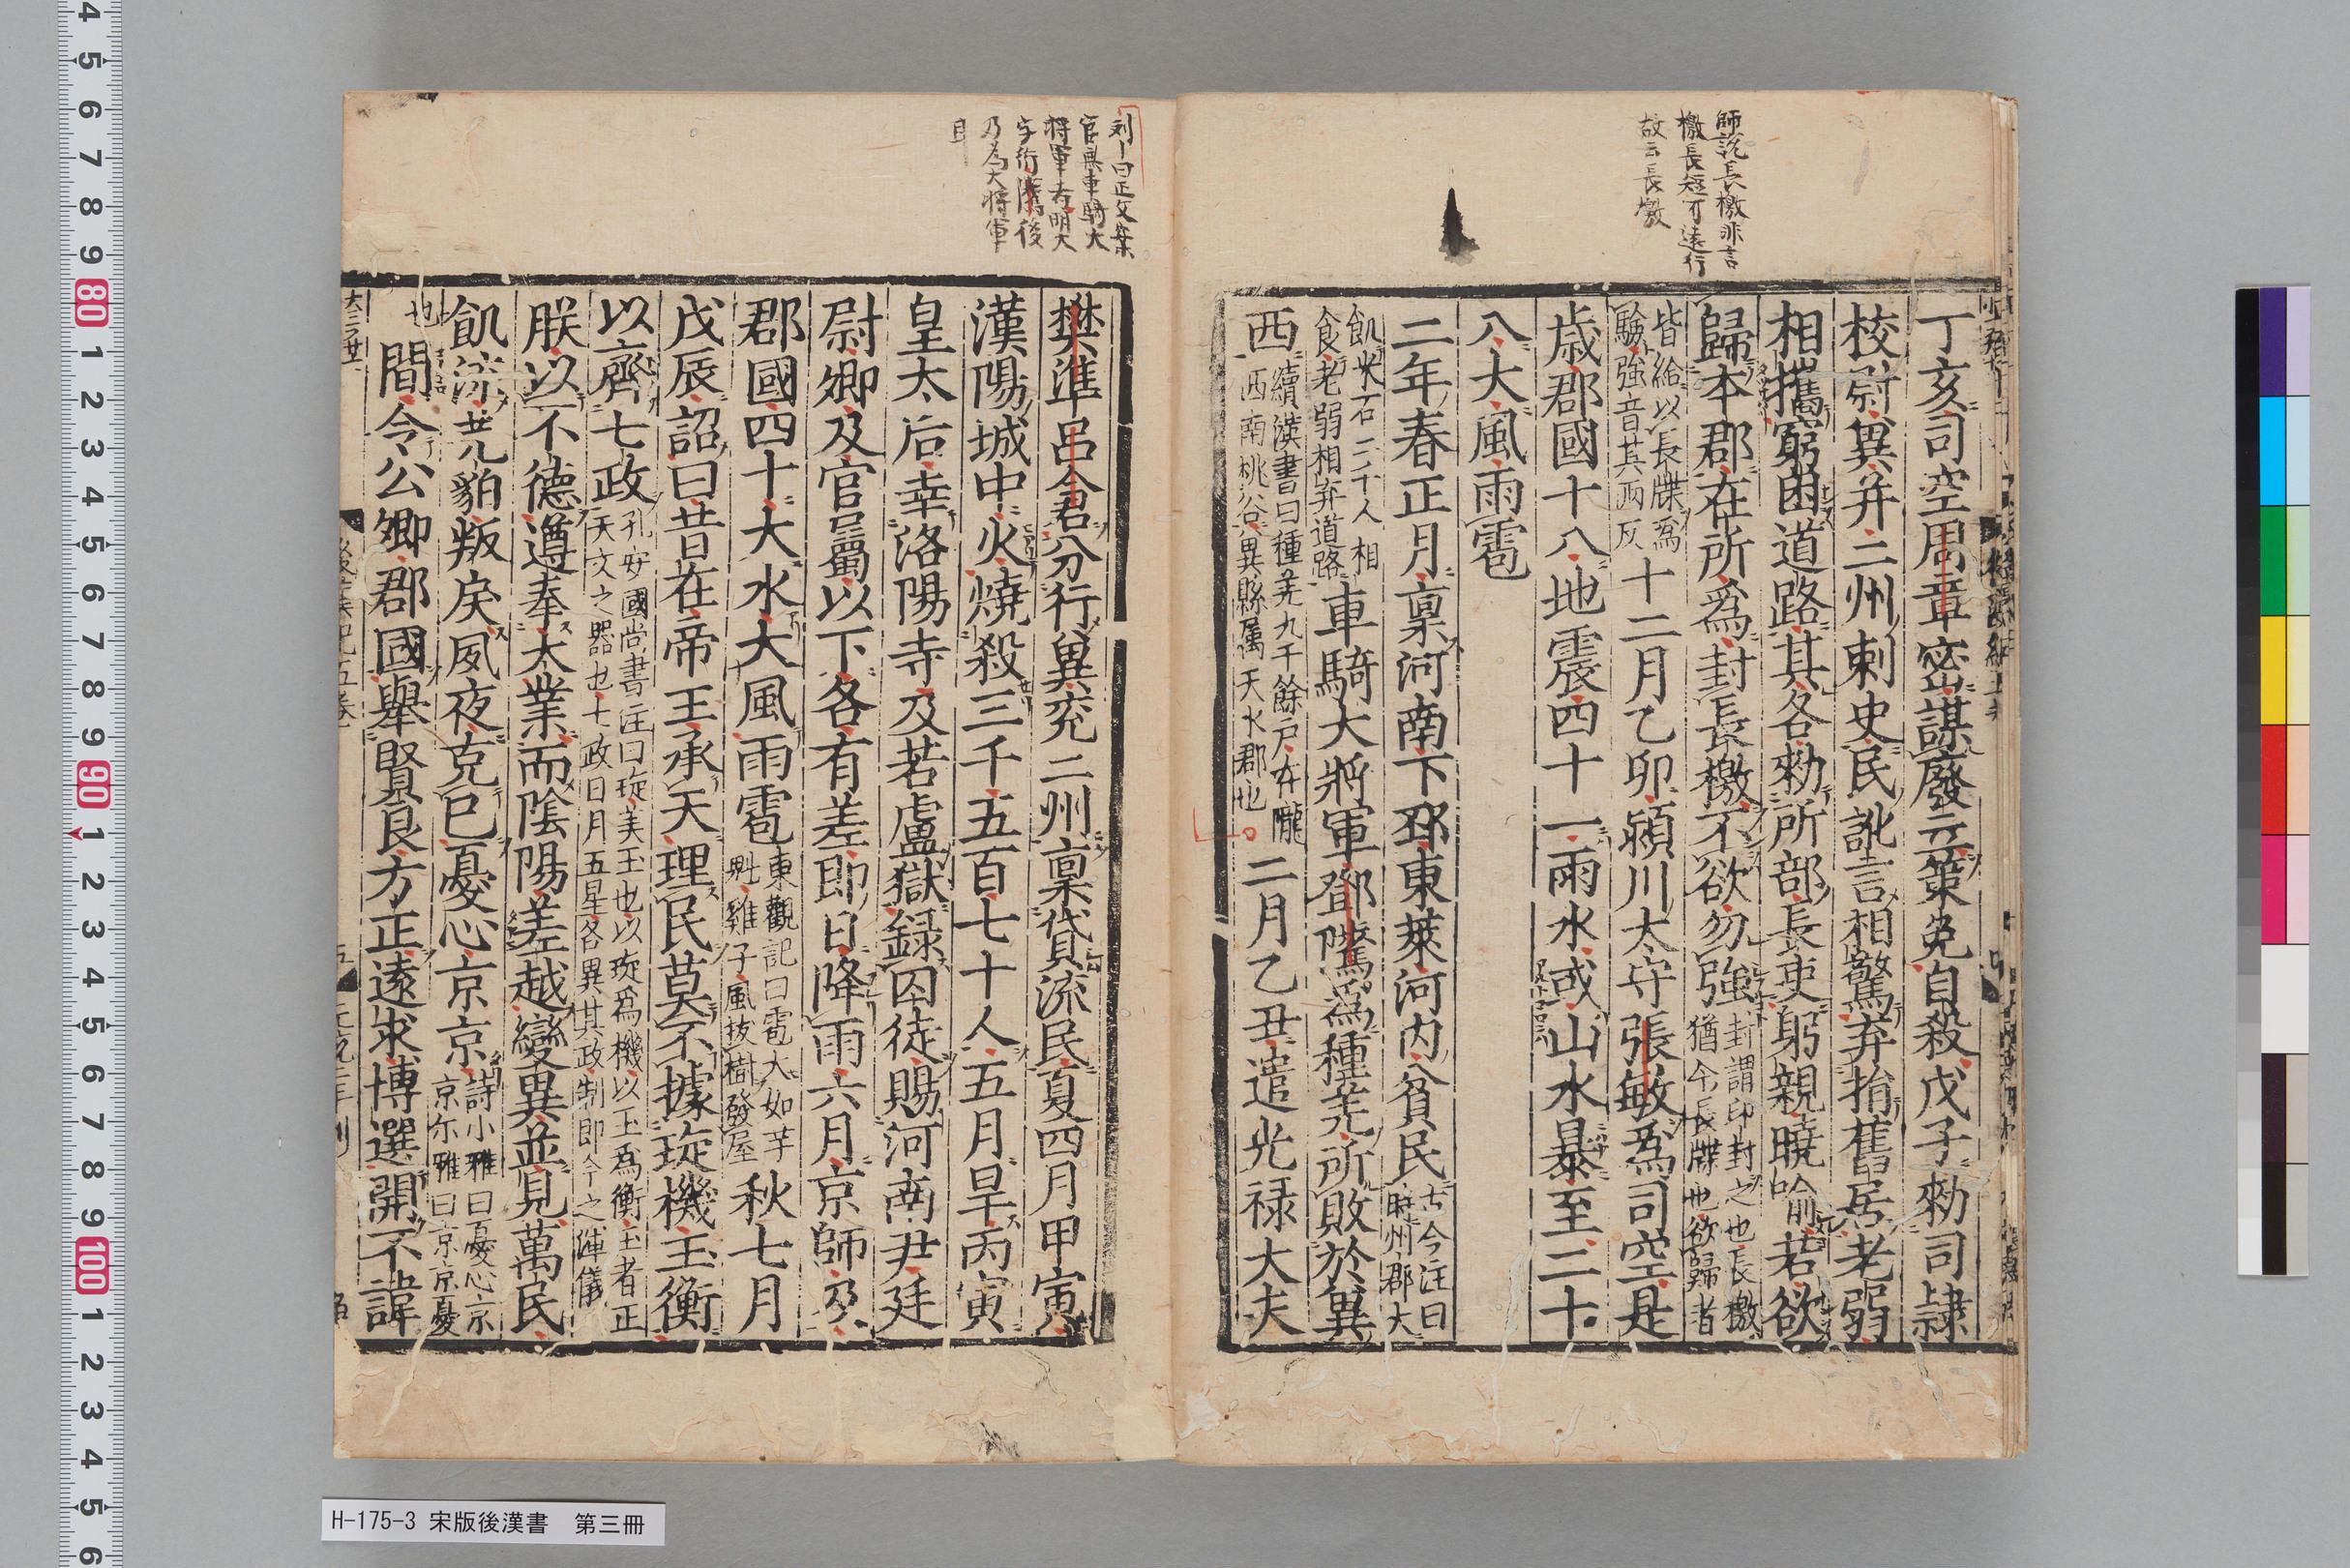 師説長檄非言
檄長短可遠行
故云長檄
丁亥司空周章密謀廢立策免自殺戊子勑司隷
校尉兾并二州刺史民訛言相驚弃捐舊居老弱
相攜窮困道路其各勑所部長吏躬親曉喻若欲
歸本郡在所爲封長檄不欲勿強封謂印封之也長檄
猶今長牒也欲歸者
皆給以長牒爲
驗強音其两反十二月乙卯潁川太守張敏爲司空是
歳郡國十八地震四十一雨水或山水暴至二十
八大風雨雹
二年春正月稟河南下邳東萊河内貧民古今注曰
時州郡大
飢米石二千人相
食老弱相弃道路車騎大將軍鄧隲爲種羌所敗於兾
西續漢書曰種羌九千餘戸在隴
西西南桃谷兾縣属天水郡也二月乙丑遣光禄大夫
刘曰正文案
官無車騎大
将軍去明大
字衍隲後
乃為大将軍
耳
樊準呂倉分行兾兖二州稟貸流民夏四月甲寅
漢陽城中火燒殺三千五百七十人五月旱丙寅
皇太后幸洛陽寺及若盧獄録囚徒賜河南尹廷
尉卿及官屬以下各有差即日降雨六月京師及
郡國四十大水大風雨雹東觀記曰雹大如芋
魁雞子風拔樹發屋秋七月
戊辰詔曰昔在帝王承天理民莫不據琁機玉衡
以齊七政孔安國尚書注曰琁美玉也以琁爲機以玉爲衡王者正
天文之器也七政日月五星各異其政制即今之渾儀
朕以不德遵奉大業而陰陽差越變異並見萬民
飢流羌貊叛戾夙夜克己憂心京京詩小雅曰憂心京
京尓雅曰京京憂
也間令公卿郡國舉賢良方正遠求博選開不諱
H-175-3 宋版後漢書 第三冊